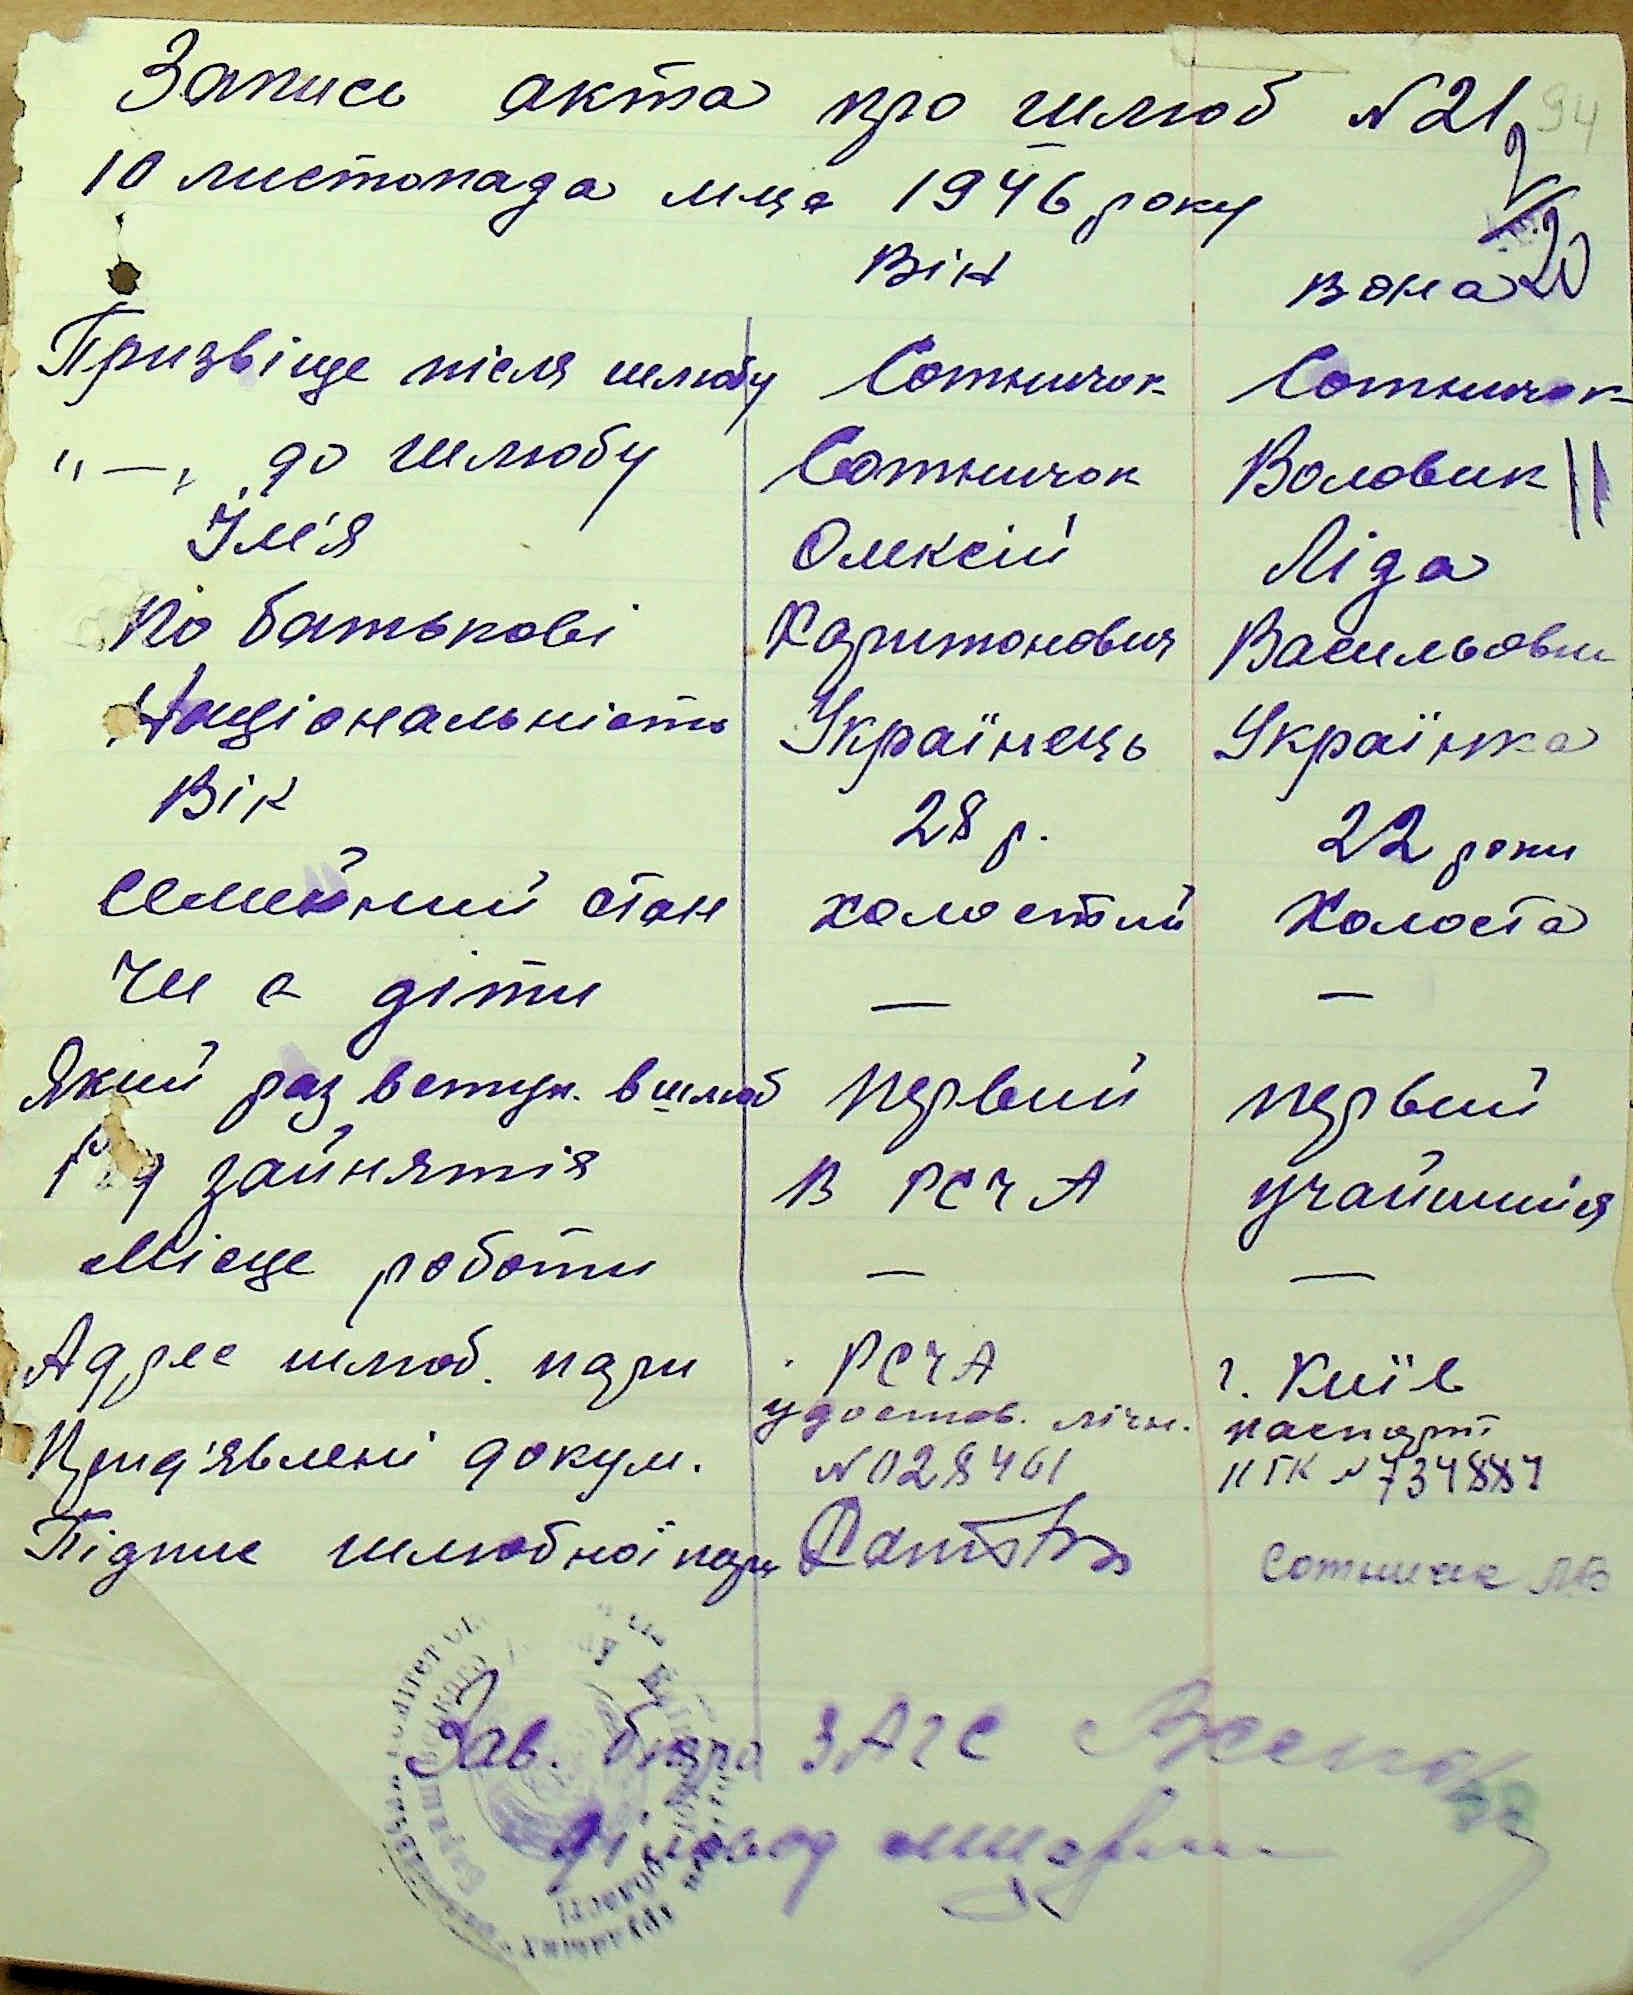 Запись акта про шлюб N 21 94
10 листопада м-ця 1946 року
2/20
Він вона
Призвіще після шлюбу Сотничок Сотничок
"—„ до шлюбу Сотничок Воловик
Їм'я Олексій Ліда
По батькові Харитонович Васильовна
Національність Українець Українка
Вік 28 р. 22 роки
Семейний стан холостий Холоста
Чи є діти — —
Який раз вступ. в шлюб первий первий
Рід зайнятія В РСЧА учайшийся
Місце роботи — —
Адрес шлюб. пари РСЧА г. Київ
Придʼявлені докум. удостов. лічн. N 028461 паспорт N 734884
Підпис шлюбної пари Сотничок ЛВ
Зав. бюро ЗАГС
Діловод